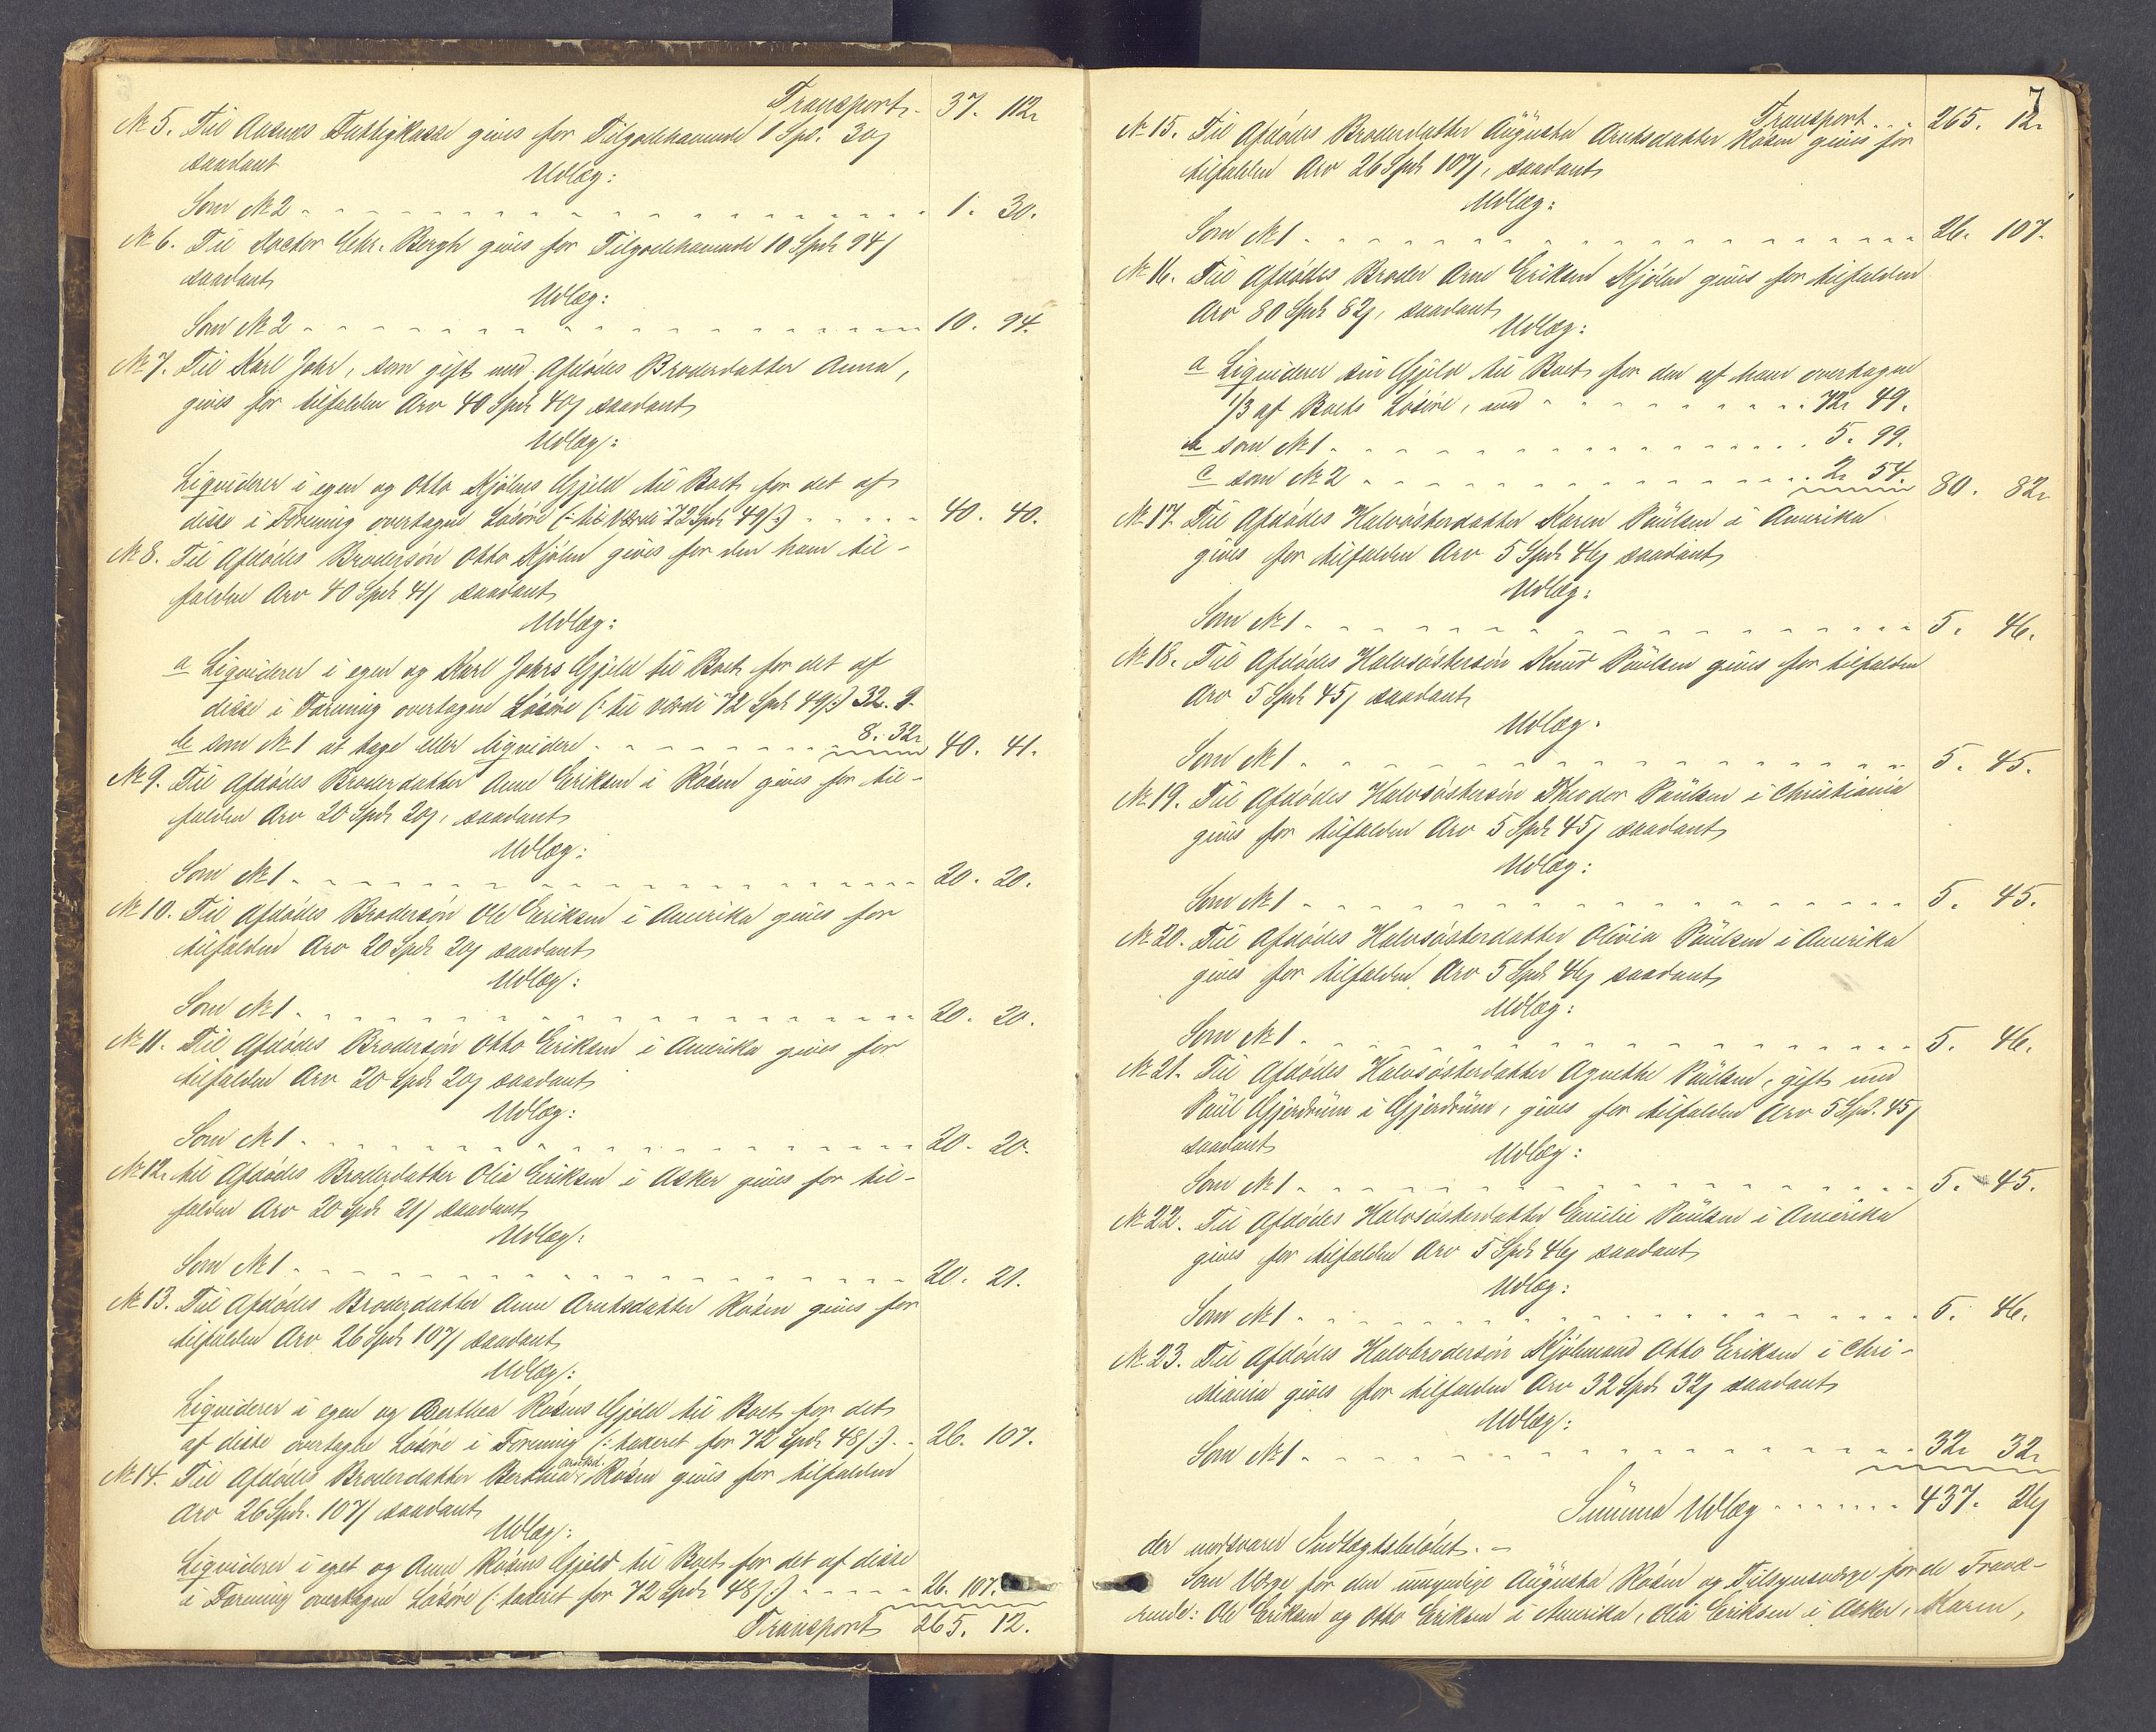 Transport - 37. 112
№ 5. Til Aasnæs Fattigkasse gives for Tilgodehavende 1 Spd. 30ʃ
saadant
Udlæg:
Som № 2 - - - 1. 30.
№ 6. Til Doctor Chr. Bergh gives for Tilgodehavende 10 Spd 94ʃ
saadant
Udlæg:
Som № 2 - - - 10. 94.
№ 7. Til Karl Johr, som gift med Afdødes Broderdatter Anna,
gives for tilfalden Arv 40 Spd 40ʃ saadant
Udlæg:
Liquiderer i egen og Otto Kjølens Gjeld til Boet for det af
disse i Forening overtagne Løsøre (: til Værdi 72 Spd 49ʃ:) - - - 40. 40.
№ 8. Til Afdødes Brodersøn Otto Kjølen gives for den ham til-
falden Arv 40 Spd 41ʃ saadant
Udlæg:
a Liquiderer i egen og Karl Johrs Gjeld til Boet for det af
disse i Forening overtagne Løsøre (: til værdi 72 Spd 49ʃ:) 32. 9.
b som № 1 at tage eller liquidere - - - 8. 32. 40. 41.
№ 9. Til Afdødes Broderdatter Anne Eriksen i Råsen gives for til-
falden Arv 20 Spd 20ʃ, saadant
Udlæg:
Som № 1 - - - 20. 20.
№ 10. Til Afdødes Brodersøn Ole Eriksen i Amerika gives for
tilfalden Arv 20 Spd 20ʃ saadant
Udlæg:
Som № 1 - - - 20. 20.
№ 11. Til Afdødes Brodersøn Otto Eriksen i Amerika gives for
tilfalden Arv 20 Spd 20ʃ saadant
Udlæg:
Som № 1 - - - 20. 20.
№ 12. til Afdødes Broderdatter Olia Eriksen i Asker gives for til-
falden Arv 20 Spd 21ʃ saadant
Udlæg:
Som № 1 - - - 20. 21.
№ 13. Til Afdødes Broderdatter Anne Arntsdatter Råsen gives for
tilfalden Arv 26 Spd 107ʃ saadant
Udlæg:
Liquiderer i egen og Berthea Råsens Gjeld til Boet for det
af disse overtagne Løsøre i Forening (: taxeret for 72 Spd 48ʃ:) - - 26. 107.
№ 14. Til Afdødes Broderdatter Berthea Arntsd. Råsen gives for tilfalden
Arv 26 Spd. 107ʃ saadant
Udlæg:
Liquiderer i eget og Anne Råsens Gjeld til Boet for det af disse
i Forening overtagne Løsøre (: taxeret for 72 Spd 48ʃ:) - - - 26. 107.
Transport 265. 12.
7
Transport - - - 265. 12.
№ 15. Til Afdødes Broderdatter Augusta Arntsdatter Råsen gives for
tilfalden Arv 26 Spd 107ʃ, saadant
Udlæg:
Som № 1 - - - 26. 107.
№ 16. Til Afdødes Broder Arne Eriksen Kjølen gives for tilfalden
Arv 80 Spd 82ʃ, saadant
Udlæg:
a Liquiderer sin Gjeld til Boet for den af ham overtagne
1/3 af Boets Løsøre, med - - - 72. 49.
b som № 1 - - - 5. 99.
c som № 2 - - - 2. 54. 80. 82.
№ 17. Til Afdødes Halvsøsterdatter Karen Paulsen i Amerika
gives for tilfalden Arv 5 Spd 46ʃ saadant
Udlæg:
Som № 1 - - - 5. 46.
№ 18. Til Afdødes Halvsøstersøn Knud Paulsen gives for tilfalden
Arv 5 Spd 45ʃ saadant
Udlæg.
Som № 1 - - - 5. 45.
№ 19. Til Afdødes Halvsøstersøn Theodor Paulsen i Christiania
gives for tilfalden Arv 5 Spd 45ʃ saadant
Udlæg:
Som № 1 - - - 5. 45.
№ 20. Til Afdødes Halvsøsterdatter Olivia Paulsen i Amerika
gives for tilfalden Arv 5 Spd 46ʃ saadant
Udlæg:
Som № 1 - - - 5. 46.
№ 21. Til Afdødes Halvsøsterdatter Agnethe Paulsen, gift med
Paul Gjerdrum i Gjerdrum, gives for tilfalden Arv 5 Spd. 45ʃ
saadant
Udlæg:
Som № 1 - - - 5. 45.
№ 22. Til Afdødes Halvsøsterdatter Emilie Paulsen i Amerika
gives for tilfalden Arv 5 Spd 46ʃ saadant
Udlæg:
Som № 1 - - - 5. 46.
№ 23. Til Afdødes Halvbrodersøn Kjølmand Otto Eriksen i Chri-
stiania gives for tilfalden Arv 32 Spd 32ʃ saadant
Udlæg:
Som № 1 - - - 32. 32.
Summa Udlæg - - - 437. 26ʃ
der modsvarer Indlægtsbeløbet. -
Som Værge for den umyndige Augusta Råsen og Tilsynsværge for de Fravæ-
rende: Ole Eriksen og Otto Eriksen i Amerika, Olia Eriksen i Asker, Karen,